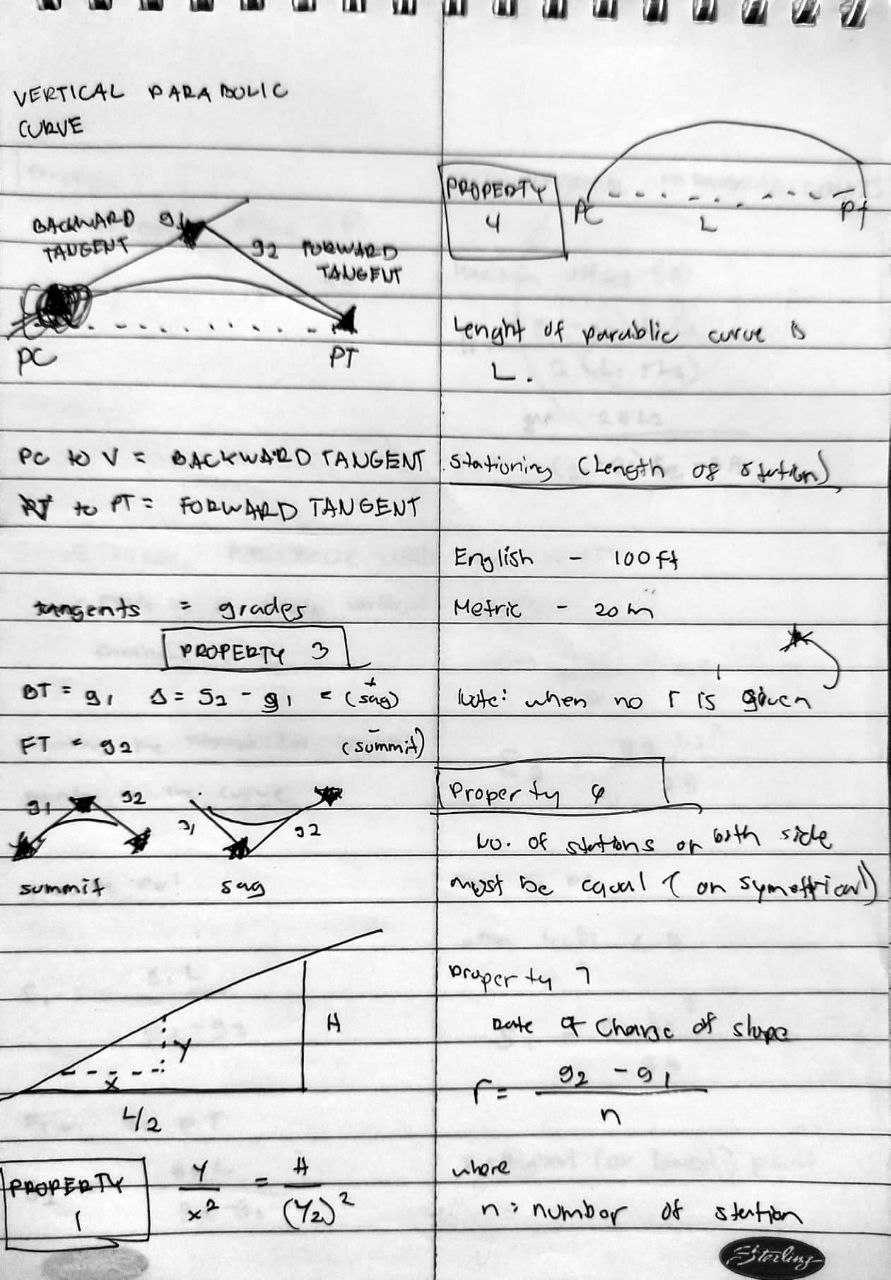 VERTICAL PARABOLIC
CURVE
BACKWARD
TANGENT
g1
g2
FORWARD
TANGENT
PC
PT
PC to V = BACKWARD TANGENT
to PT = FORWARD TANGENT
tangents = grades
PROPERTY 3
BT = g1 Δ = S2 - g1 = (+ sag)
FT = g2 (- summit)
g1 g2
g1 g2
summit sag
H
Y
X
L/2
PROPERTY
1
Y/x² = H/(L/2)²
PROPERTY
4
PC
PT
L
Lenght of parablic curve is
L.
Stationing (Length of station)
English - 100 ft
Metric - 20 m
Note: when no r is given
Property 6
No. of stations on both side
must be equal ( on symettrical)
Property 7
Rate of Change of slope
r = g2 - g1 / n
where
n: number of station
Sterling